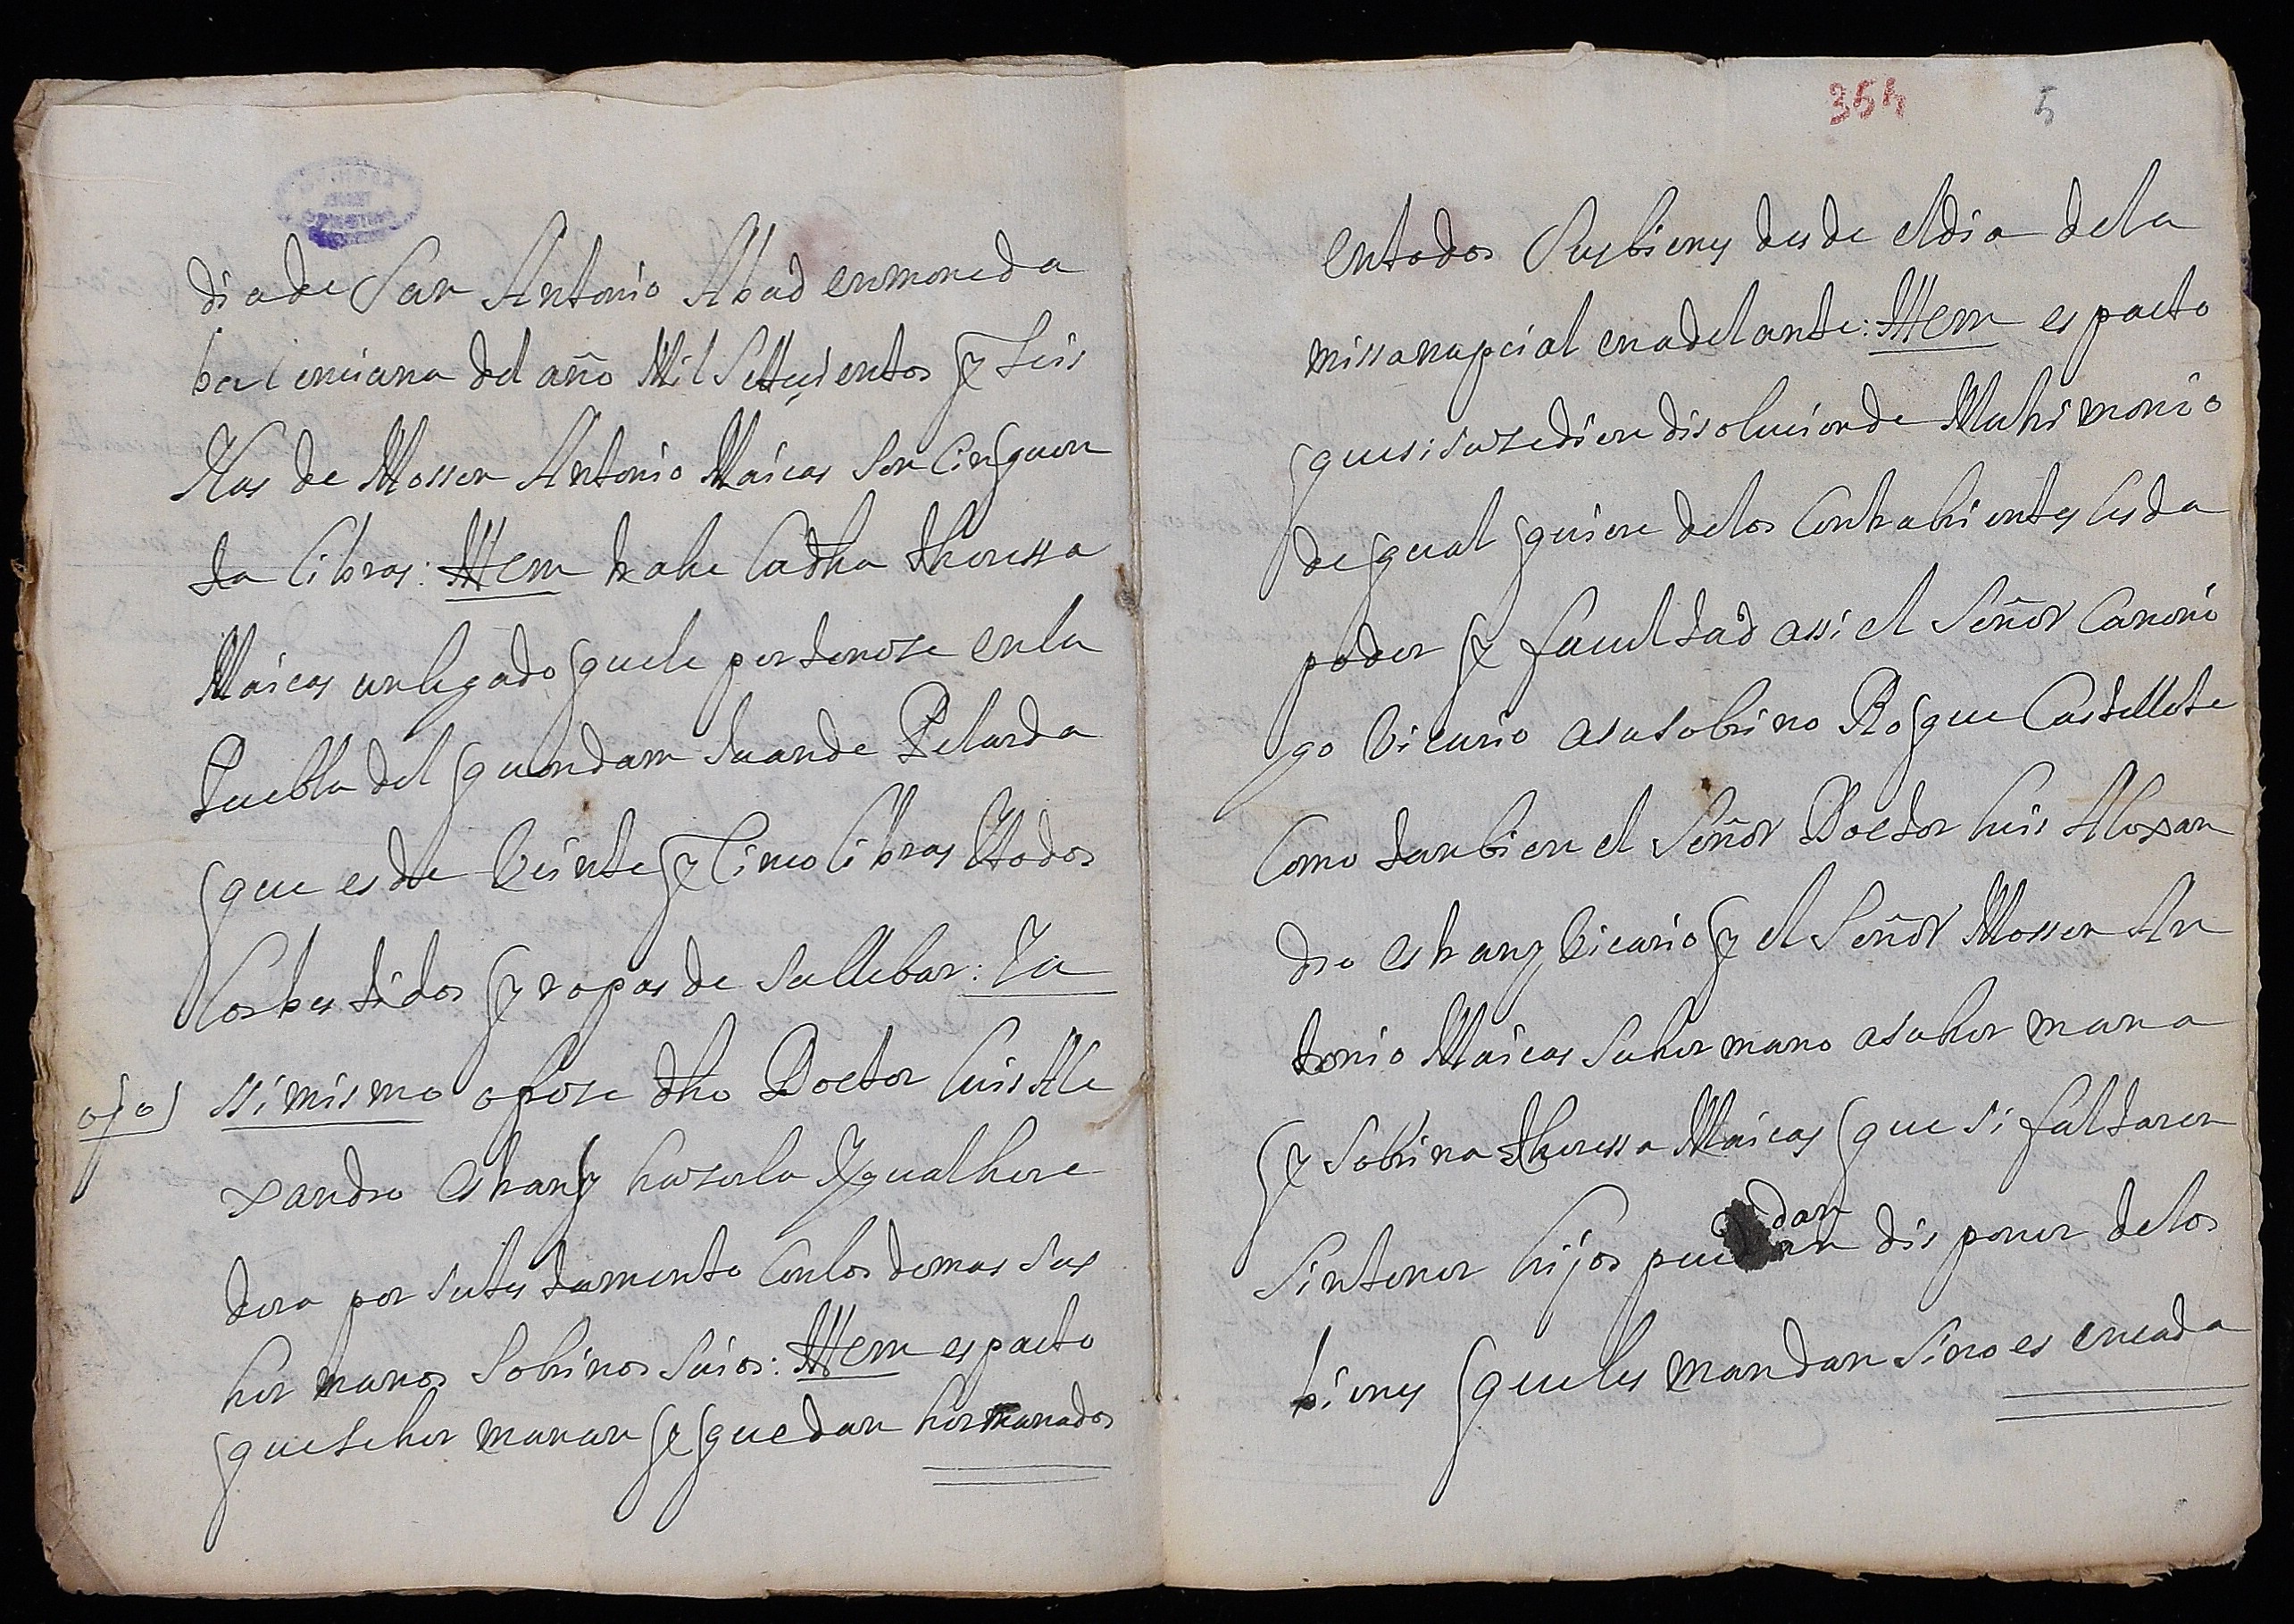 dia de San Antonio Abad en moneda
balenciana del año Mil Settesientos y seis
Mas de Mossen Antonio Maicas son cinquen
ta libras: Ittem trahe la dha Theressa
Maicas un legado que le pertenese en la
Puebla del quondam Juan de Pelarda
que es de beinte y cinco libras I todos
los bestidos y ropas de su llebar: I a
ojo ssi mismo ofrese dho Doctor Luis Ale
xandro Estrany haserla Igual here
dera por su testamento con los demas sus
hermanos sobrinos suios: Ittem es pacto
que se hermanan y quedan hermanados
354 5
en todos sus bienes desde el dia de la
missa nupcial en adelante: Ittem es pacto
que si susediere disolucion de Matrimonio
de qual quiere de los contrahientes les da
poder y facultad assi el Señor Canoni
go Vicario a su sobrino Roque Castellote
como tanbien el Señor Doctor Luis Alexan
dro Estrany Vicario y el Señor Mossen An
tonio Maicas su hermano a su hermana
y sobrina Theressa Maicas que si faltaren
dan
sin tener hijos puedan disponer de los
bienes que les mandan sino es en cada